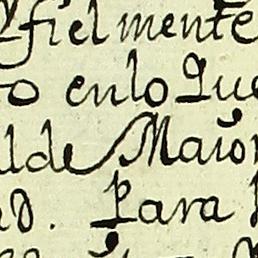 y fielmente
to enlo Que
alde Maior
ad. Para